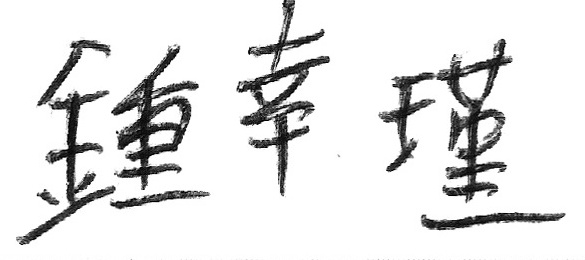 鍾幸瑾